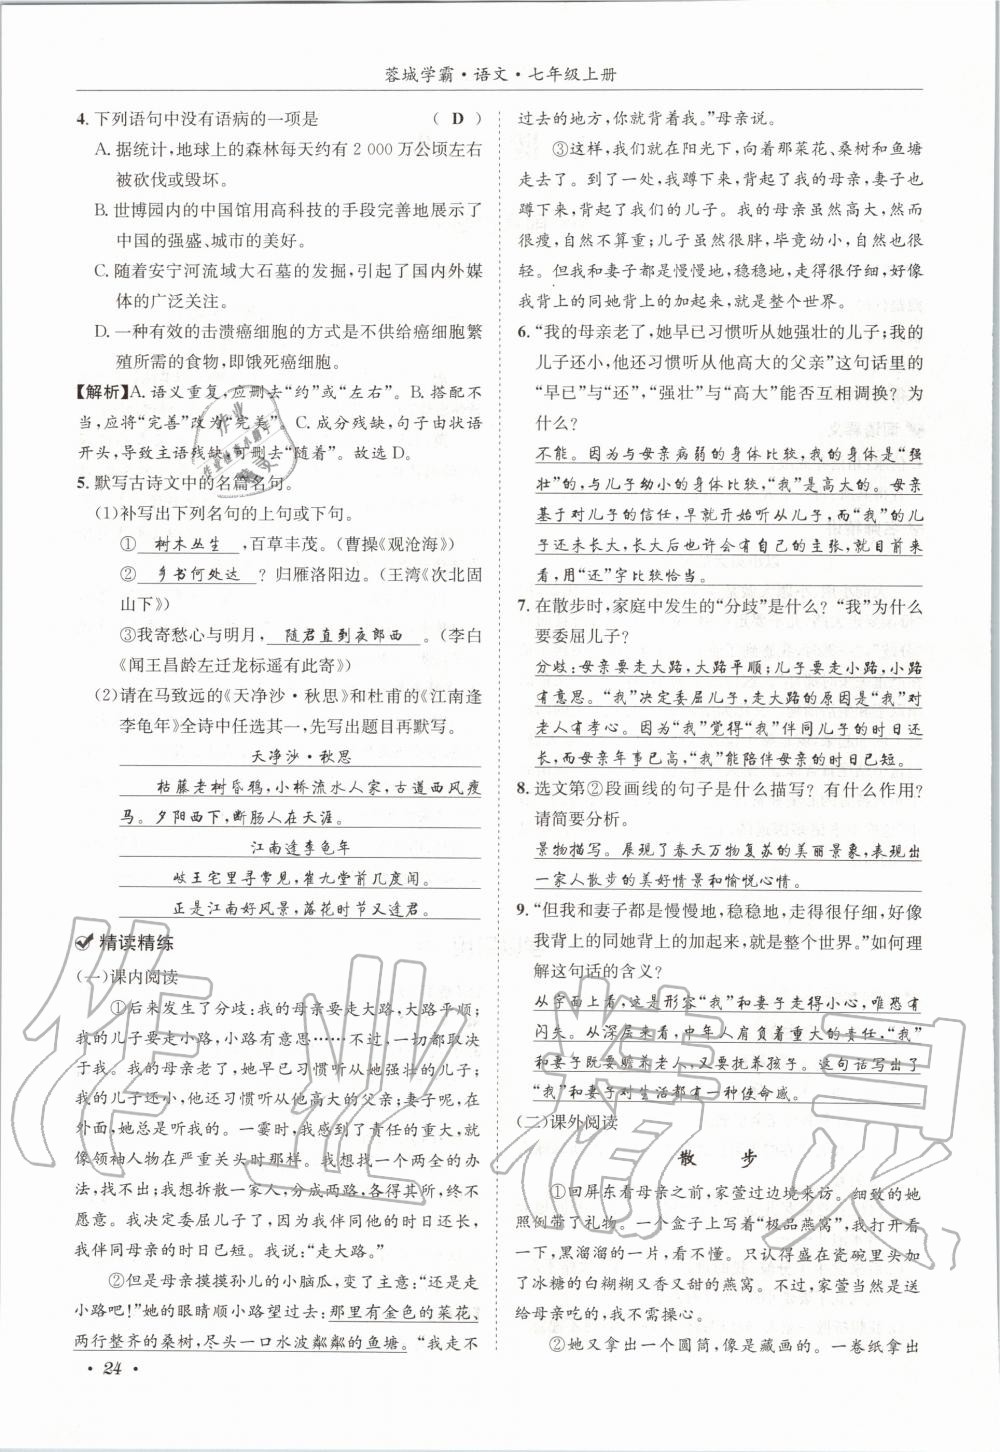 蓉城学霸·语文·七年级上册
4. 下列语句中没有语病的一项是 （ D ）
A. 据统计,地球上的森林每天约有 2 000 万公顷左右
被砍伐或毁坏。
B. 世博园内的中国馆用高科技的手段完善地展示了
中国的强盛、城市的美好。
C. 随着安宁河流域大石墓的发掘,引起了国内外媒
体的广泛关注。
D. 一种有效的击溃癌细胞的方式是不供给癌细胞繁
殖所需的食物,即饿死癌细胞。
【解析】A. 语义重复,应删去“约”或“左右”。B. 搭配不
当,应将“完善”改为“完美”。C. 成分残缺,句子由状语
开头,导致主语残缺,可删去“随着”。故选 D。
5. 默写古诗文中的名篇名句。
(1)补写出下列名句的上句或下句。
① 树木丛生 ,百草丰茂。(曹操《观沧海》)
② 乡书何处达 ？归雁洛阳边。(王湾《次北固
山下》)
③我寄愁心与明月, 随君直到夜郎西 。(李白
《闻王昌龄左迁龙标遥有此寄》)
(2)请在马致远的《天净沙·秋思》和杜甫的《江南逢
李龟年》全诗中任选其一,先写出题目再默写。
天净沙·秋思
枯藤老树昏鸦,小桥流水人家,古道西风瘦
马。夕阳西下,断肠人在天涯。
江南逢李龟年
岐王宅里寻常见,崔九堂前几度闻。
正是江南好风景,落花时节又逢君。
精读精练
(一)课内阅读
①后来发生了分歧:我的母亲要走大路,大路平顺;
我的儿子要走小路,小路有意思……不过,一切都取决
于我。我的母亲老了,她早已习惯听从她强壮的儿子;
我的儿子还小,他还习惯听从他高大的父亲;妻子呢,在
外面,她总是听我的。一霎时,我感到了责任的重大,就
像领袖人物在严重关头时那样。我想找一个两全的办
法,找不出;我想拆散一家人,分成两路,各得其所,终不
愿意。我决定委屈儿子了,因为我伴同他的时日还长,
我伴同母亲的时日已短。我说:“走大路。”
②但是母亲摸摸孙儿的小脑瓜,变了主意:“还是走
小路吧!”她的眼睛顺小路望过去:那里有金色的菜花、
两行整齐的桑树,尽头一口水波粼粼的鱼塘。“我走不
过去的地方,你就背着我。”母亲说。
③这样,我们就在阳光下,向着那菜花、桑树和鱼塘
走去了。到了一处,我蹲下来,背起了我的母亲,妻子也
蹲下来,背起了我们的儿子。我的母亲虽然高大,然而
很瘦,自然不算重;儿子虽然很胖,毕竟幼小,自然也很
轻。但我和妻子都是慢慢地,稳稳地,走得很仔细,好像
我背上的同她背上的加起来,就是整个世界。
6. “我的母亲老了,她早已习惯听从她强壮的儿子;我的
儿子还小,他还习惯听从他高大的父亲”这句话里的
“早已”与“还”,“强壮”与“高大”能否互相调换？为什
么？
不能。因为与母亲病弱的身体比较,“我”的身体是“强
壮”的,与儿子幼小的身体比较,“我”是高大的。母亲
基于对儿子的信任,早就开始听从儿子,而“我”的儿
子还未长大,长大后也许会有自己的主张,就目前来
看,用“还”字比较恰当。
7. 在散步时,家庭中发生的“分歧”是什么？“我”为什么
要委屈儿子？
分歧:母亲要走大路,大路平顺;儿子要走小路,小路
有意思。“我”决定委屈儿子,走大路的原因是“我”对
老人有孝心。因为“我”觉得“我”伴同儿子的时日还
长,而母亲年事已高,“我”能陪伴母亲的时日已短。
8. 选文第②段画线的句子是什么描写？有什么作用？
请简要分析。
景物描写。展现了春天万物复苏的美丽景象,表现出
一家人散步的美好情景和愉悦心情。
9. “但我和妻子都是慢慢地,稳稳地,走得很仔细,好像
我背上的同她背上的加起来,就是整个世界。”如何理
解这句话的含义？
从字面上看,这是形容“我”和妻子走得小心,唯恐有
闪失。从深层来看,中年人肩负着重大的责任,“我”
和妻子既要赡养老人,又要抚养孩子。这句话写出了
“我”和妻子对生活都有一种使命感。
(二)课外阅读
散 步
①回屏东看母亲之前,家萱过边境来访。细致的她
照例带了礼物。一个盒子上写着“极品燕窝”,我打开看
一下,黑溜溜的一片,看不懂。只认得盛在瓷碗里头加
了冰糖的白糊糊又香又甜的燕窝。不过,家萱当然是送
给母亲吃的,我不需操心。
②她又拿出一个圆筒,像是藏画的。一卷纸拿出
· 24 ·
作业精灵